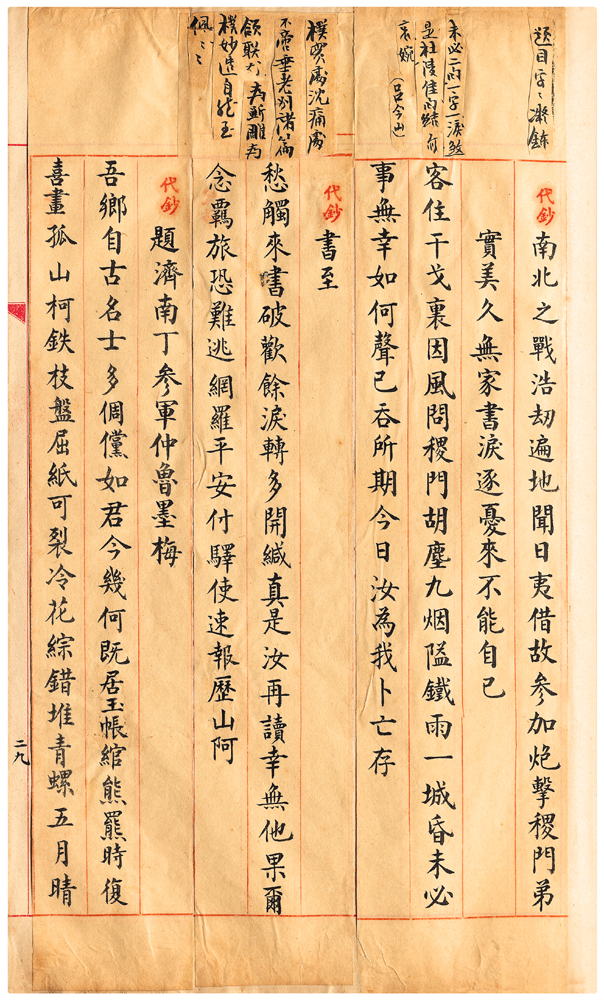 题目字々凝鍊
代鈔
南北之戰浩劫遍地聞日夷借故參加炮擊稷門弟
實美久無家書淚逐憂來不能自已
未必二句一字一淚煞
是杜陵佳句結句
哀婉
(呂今山)
客住干戈裏因風問稷門胡塵九烟隘鐵雨一城昏未必
事無幸如何聲已吞所期今日汝為我卜亡存
樸實處沈痛處
不啻垂老別諸篇
頷聯尤為斲雕為
樸妙造自然至
佩々々
代鈔
書至
愁觸來書破歡餘淚轉多開緘真是汝再讀幸無他果爾
念羈旅恐難逃網羅平安付驛使速報歷山阿
代鈔
題濟南丁參軍仲魯墨梅
吾鄉自古名士多倜儻如君今幾何既居玉帳綰熊羆時復
喜畫孤山柯鉄枝盤屈紙可裂冷花綜錯堆青螺五月晴
二九